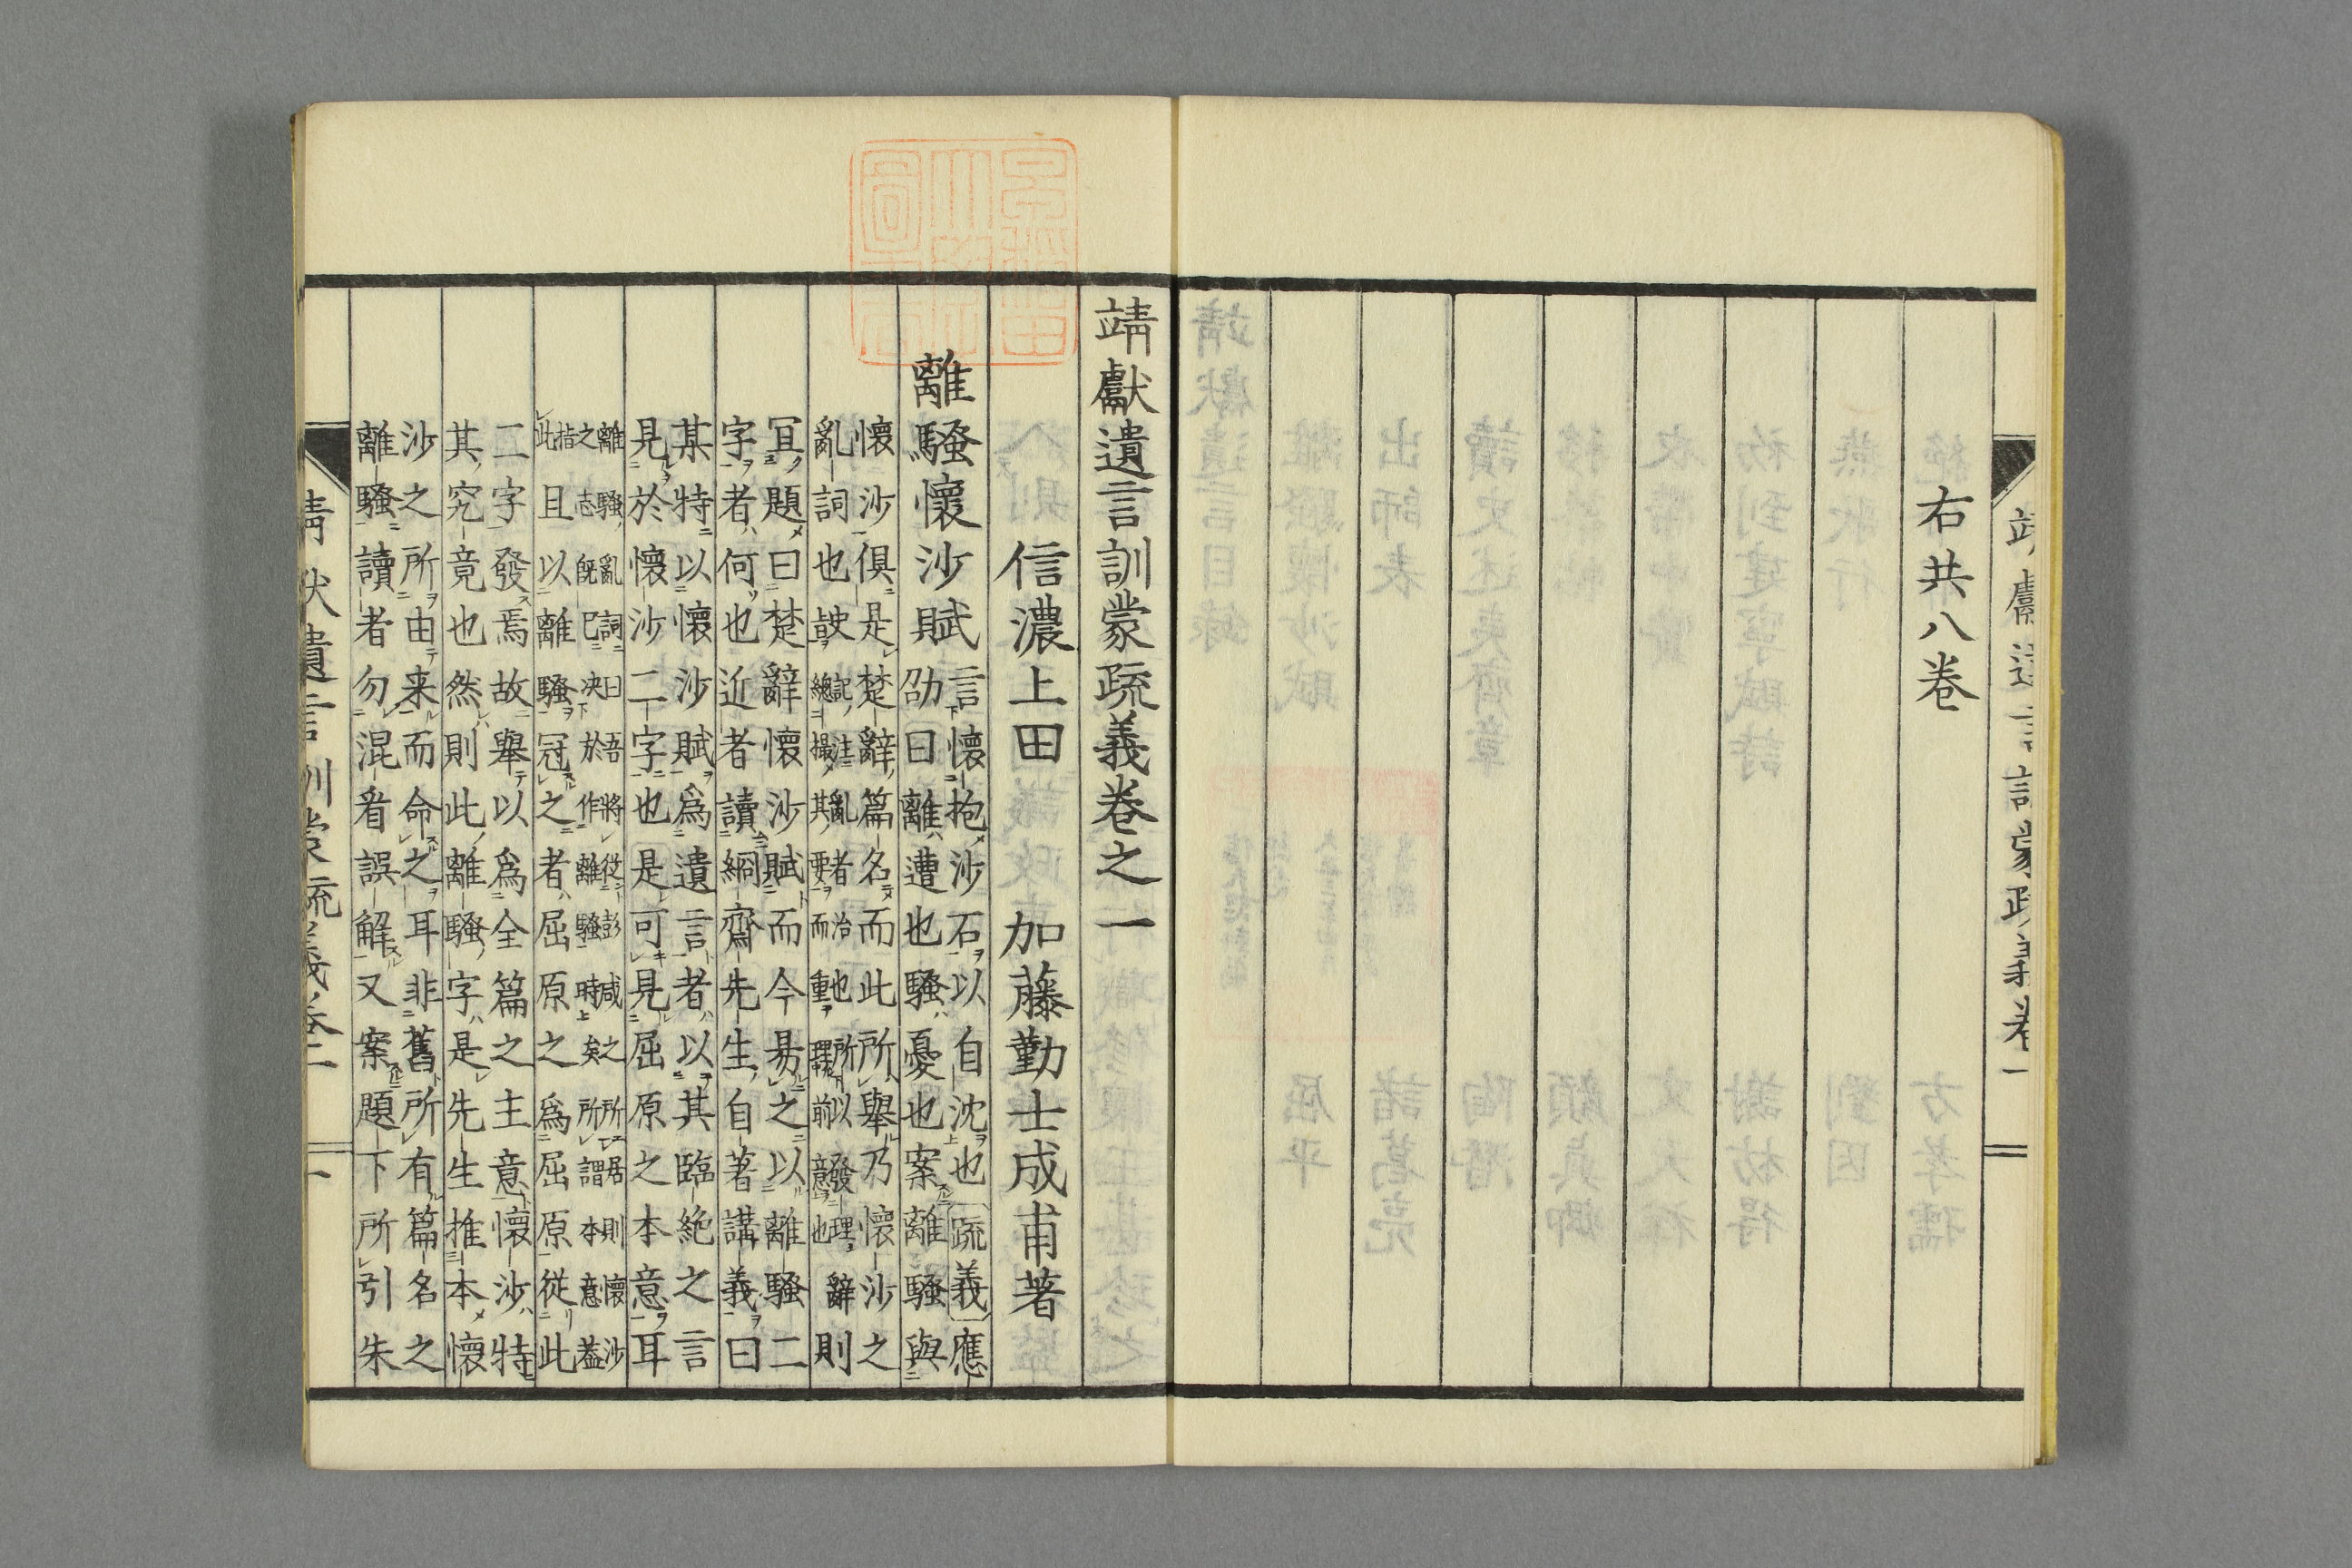 靖獻遺言訓蒙疏義卷一
右共八卷
靖獻遺言訓蒙疏義卷之一
信濃上田　加藤勤士成甫著
離騷懷沙賦
言懷抱沙石以自沈也疏義應
劭曰離遭也騷憂也案離騷與
懷沙俱是楚辭篇名而此所舉乃懷沙之
亂詞也
史記注亂者治也所以發理辭
旨總撮其要而重理前意也
則
冝題曰楚辭懷沙賦而今易之以離騷二
字者何也近者讀絅齋先生自著講義曰
某特以懷沙賦爲遺言者以其臨絶之言
見於懷沙二字也是可見屈原之本意耳
離騷亂詞曰吾將從彭咸之所居則懷沙
之志既已决於作離騷時矣所謂本意蓋
指此
且以離騷冠之者屈原之爲屈原從此
二字發焉故舉以爲全篇之主意懷沙特
其究竟也然則此離騷字是先生推本懷
沙之所由来而命之耳非舊所有篇名之
離騷讀者勿混看誤解又案題下所引朱
靖獻遺言訓蒙疏義卷一
一